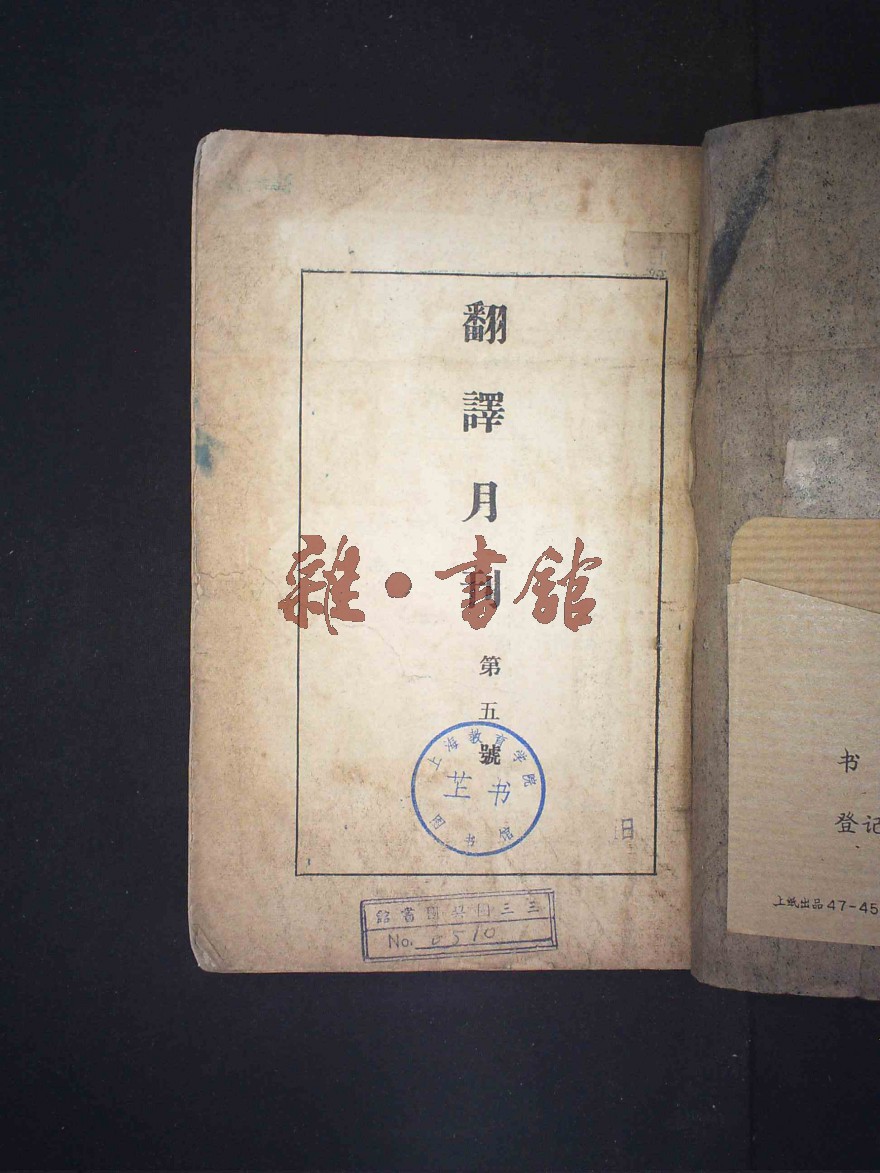 翻譯月刊
第五號
雜·書館
上海教育学院
图书馆
书
No. 0510
书
登记
上纸出品47-45